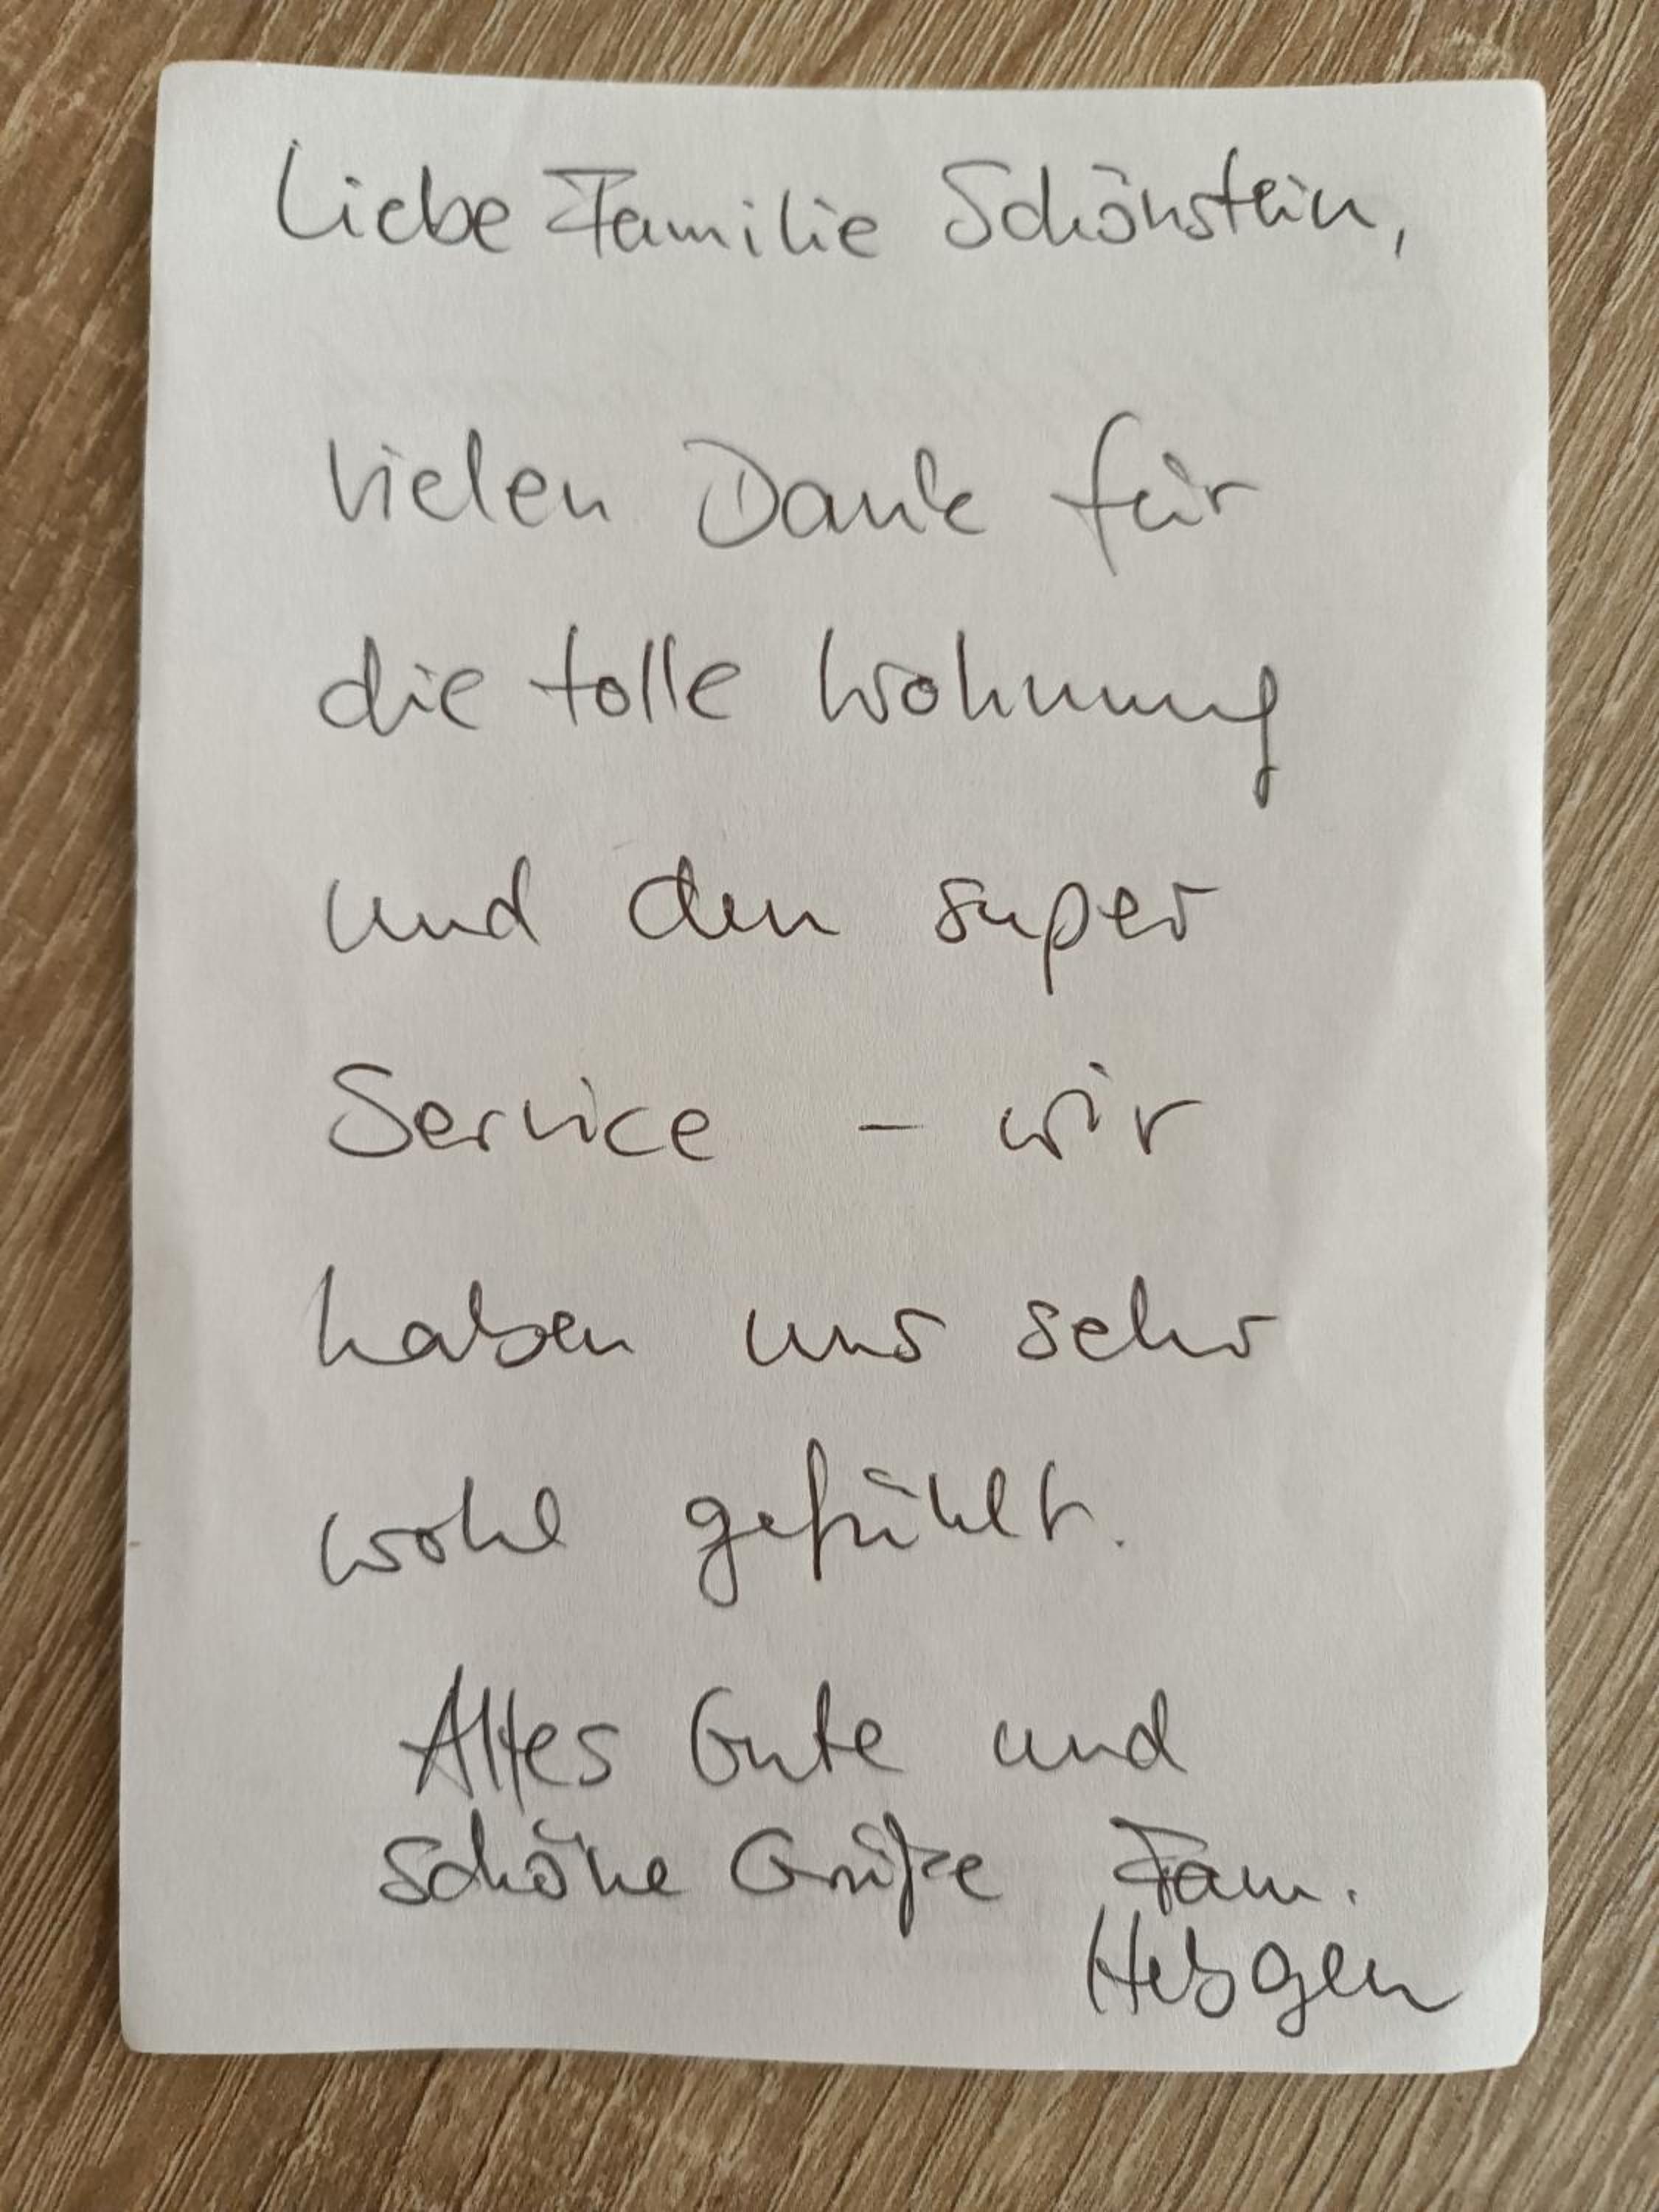 Liebe Familie Schönstein,
vielen Dank für
die tolle Wohnung
und den super
Service – wir
haben uns sehr
wohl gefühlt.
Alles Gute und
schöne Grüße Fam.
Hebgen